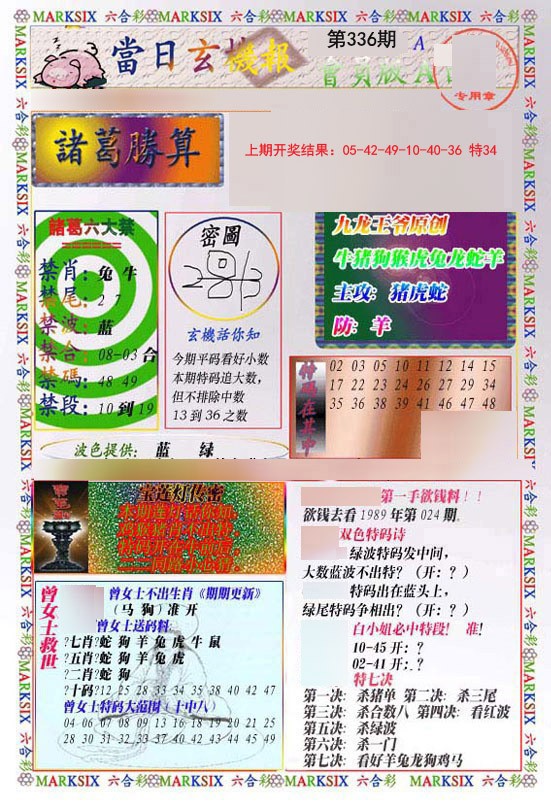 MARKSIX 六合彩 MARKSIX 六合彩 MARKSIX 六合彩 MARKSIX 六合彩
當日玄機報
第336期
A
會員版A
专用章
諸葛勝算
上期开奖结果：05-42-49-10-40-36 特34
諸葛六大禁
禁肖：兔 牛
禁尾：2 7
禁波：蓝
禁合：08-03合
禁碼：48 49
禁段：10到19
密圖
玄機話你知
今期平码看好小数
本期特码追大数，
但不排除中数
13到36之数
九龙王爷原创
牛猪狗猴虎兔龙蛇羊
主攻：猪虎蛇
防：羊
特码在其中
02 03 05 10 11 12 14 15
17 22 23 24 26 27 29 34
35 36 38 39 41 46 47 48
波色提供： 蓝 绿
宝莲灯传密
曾女士救世
曾女士不出生肖《期期更新》
（马 狗）准开
曾女士送码料：
?七肖?蛇 狗 羊 兔 虎 牛 鼠
?五肖?蛇 狗 羊 兔 虎
?二肖?蛇 狗
?十码?12 25 28 33 34 35 38 40 42 47
曾女士特码大范围（十中八）
04 06 07 08 09 14 18 19 20 21 25
28 30 31 32 33 37 40 42 43 44 45 49
第一手欲钱料！！
欲钱去看1989年第024期.
双色特码诗
绿波特码发中间，
大数蓝波不出特？（开：？）
特码出在蓝头上，
绿尾特码争相出？（开：？）
白小姐必中特段！ 准！
10-45 开：？
02-41 开：？
特七决
第一决：杀猪单 第二决：杀三尾
第三决：杀合数八 第四决：看红波
第五决：杀绿波
第六决：杀一门
第七决：看好羊兔龙狗鸡马
MARKSIX 六合彩 MARKSIX 六合彩 MARKSIX 六合彩 MARKSIX 六合彩